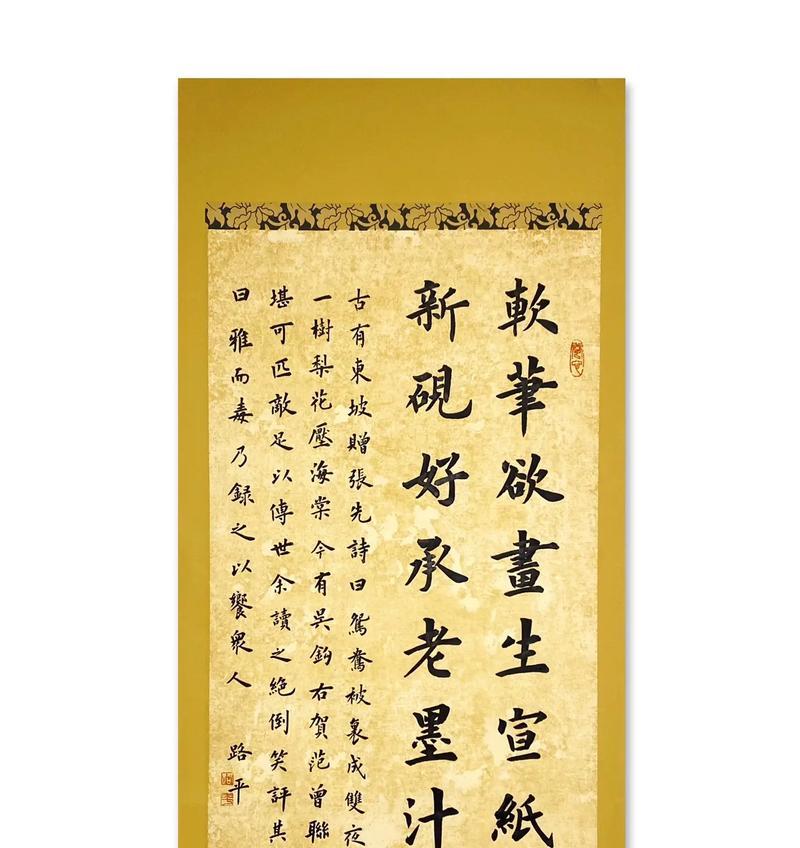 軟筆欲畫生宣紙
新硯好承老墨汁
古有東坡贈張先詩曰鴛鴦被裏成雙夜
一樹梨花壓海棠今有吳鈎右賀范曾聯
堪可匹敵足以傳世余讀之絕倒笑評其
曰雅而毒乃録之以饗衆人
路平